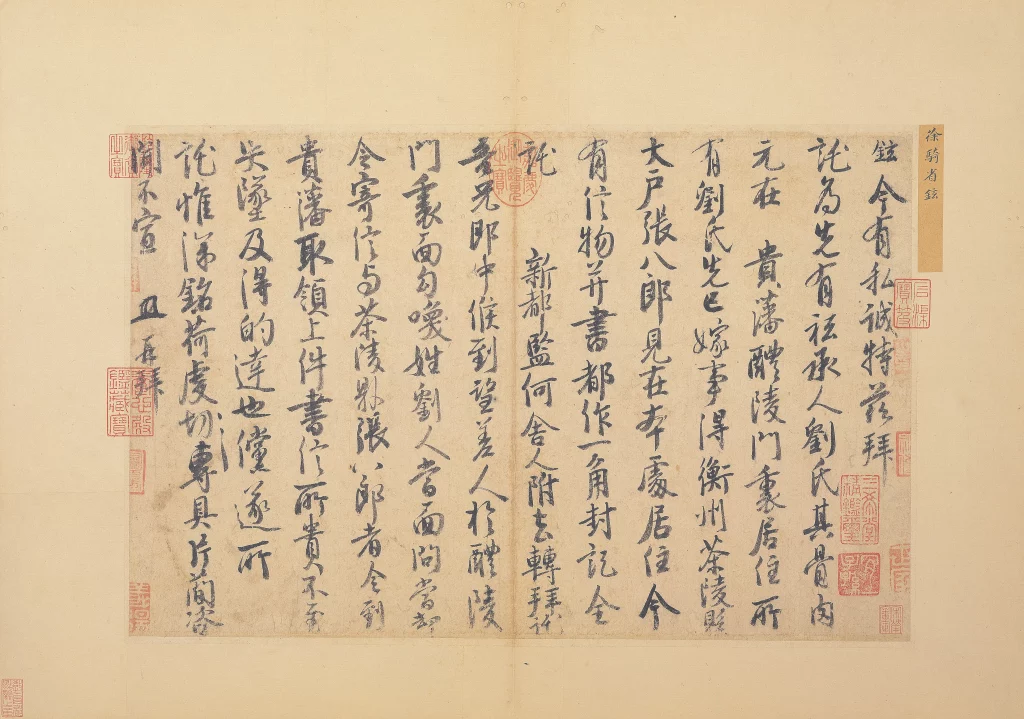 徐騎省鉉
鉉今有私誠特茲拜
託為先有祗承人劉氏其骨肉
元在 貴藩醴陵門裏居住所
有劉氏先已嫁事得衡州茶陵縣
大戶張八郎見在本處居住今
有信物并書都作一角封記全
託 新都監何舍人附去轉拜託
吾兄即中候到望差人於醴陵
門裏面勾喚姓劉人當面問當却
令寄信与茶陵縣張八郎者令到
貴藩取領上件書信所貴不至
失墜及得的達也儻遂所
託惟深銘荷虔切專具片簡咨
聞不宣 再拜
三希堂精鑑璽
宜子孫